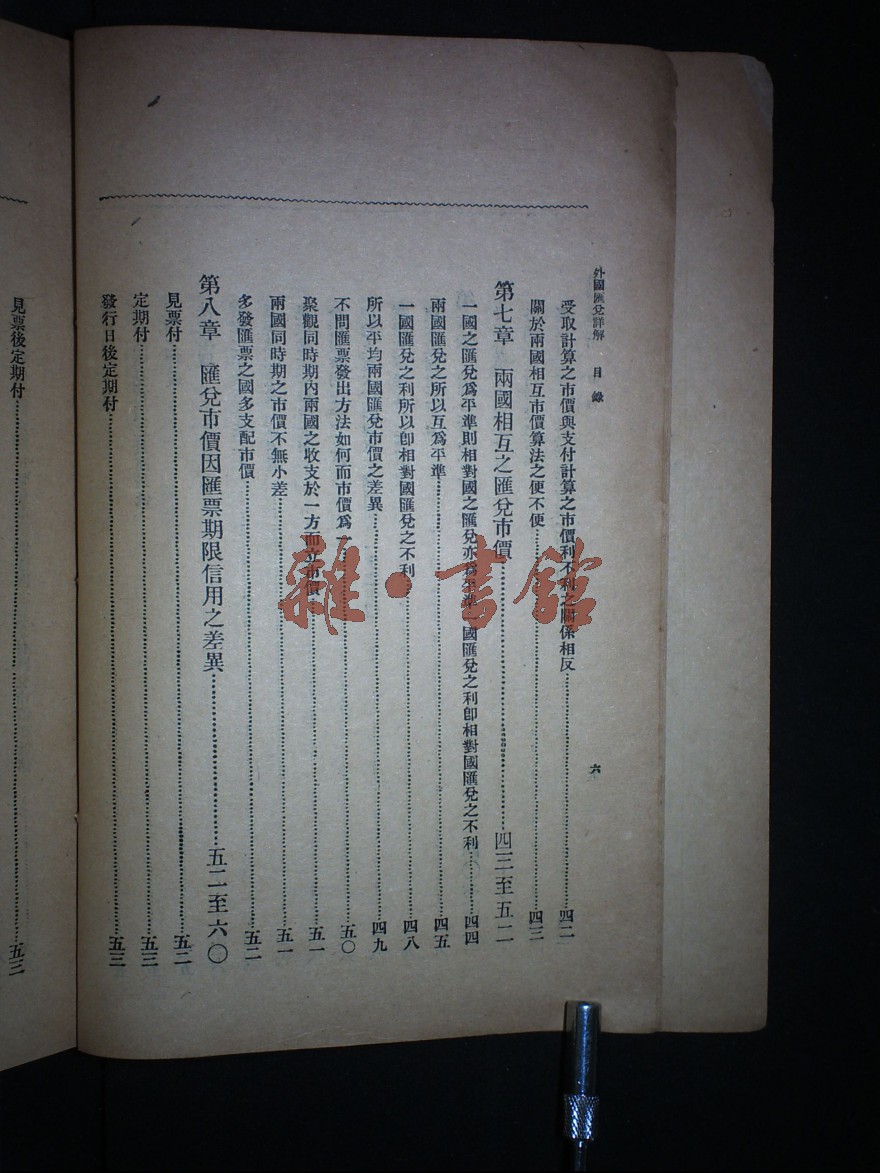 外國匯兌詳解　目錄　六
受取計算之市價與支付計算之市價利不利之關係相反…………四二
關於兩國相互市價算法之便不便…………四三
第七章　兩國相互之匯兌市價…………四三至五二
一國之匯兌爲平準則相對國之匯兌亦爲平準一國匯兌之利卽相對國匯兌之不利…………四四
兩國匯兌之所以互爲平準…………四五
一國匯兌之利所以卽相對國匯兌之不利…………四八
所以平均兩國匯兌市價之差異…………四九
不問匯票發出方法如何而市價爲一…………五〇
聚觀同時期內兩國之收支於一方而立市價…………五一
兩國同時期之市價不無小差…………五一
多發匯票之國多支配市價…………五二
第八章　匯兌市價因匯票期限信用之差異…………五二至六〇
見票付…………五二
定期付…………五三
發行日後定期付…………五三
見票後定期付…………五三
雜·書館